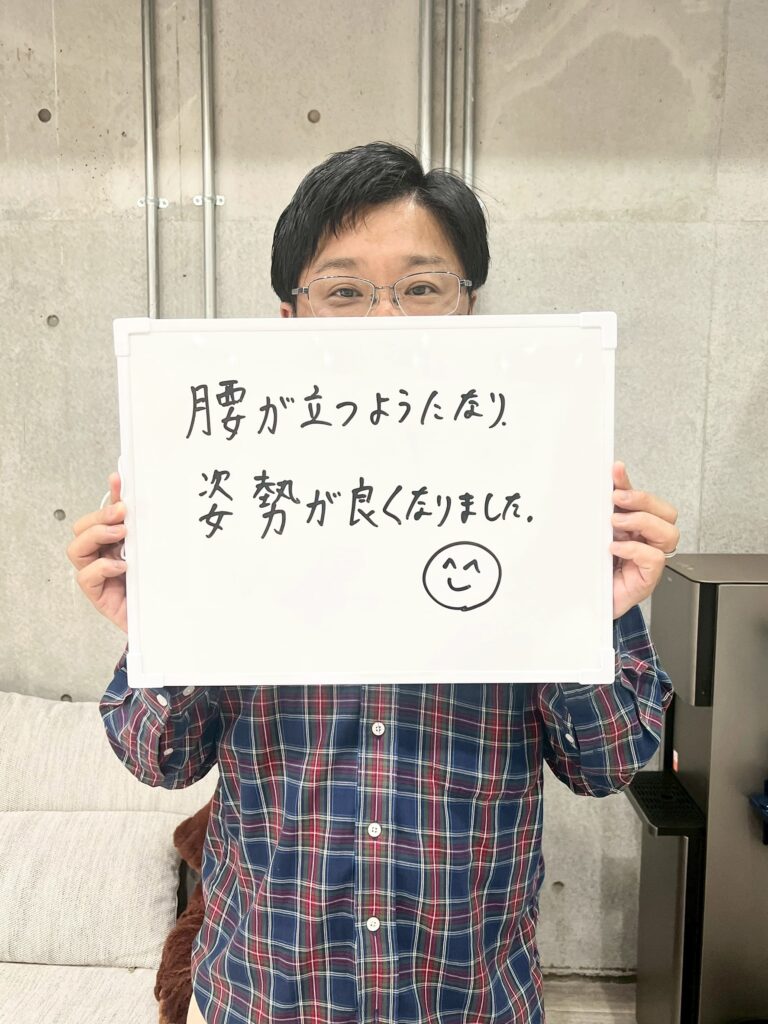 腰が立つようになり、
姿勢が良くなりました。